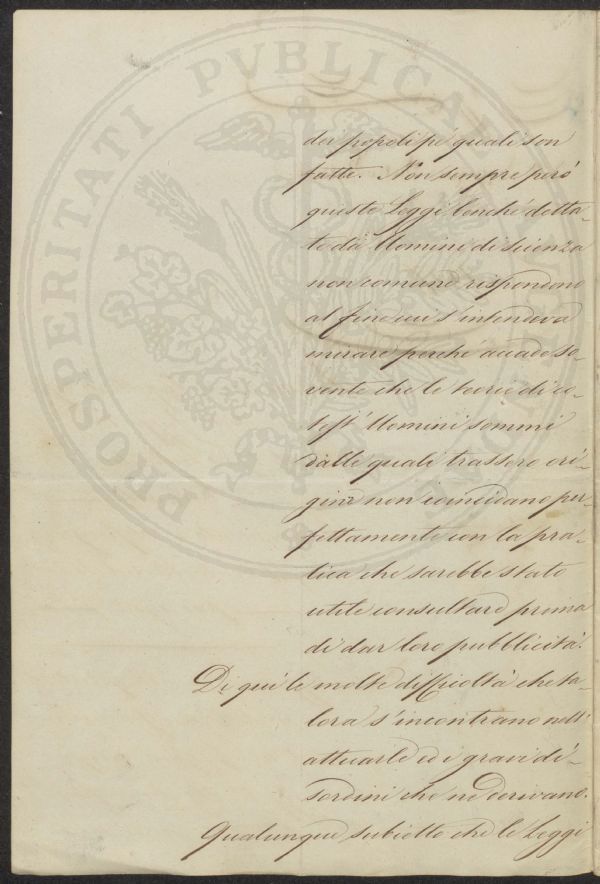 PROSPERITATI PVBLICAE
dei popoli pe' quali son
fatte. Non sempre però
queste Leggi benchè detta-
te da Uomini di scienza
non comune rispondono
al fine cui s'intendeva
mirare perchè accade so-
vente che le teorie di co-
test' Uomini sommi
dalle quali trassero ori-
gine non coincidano per-
fettamente con la pra-
tica che sarebbe stato
utile consultare prima
di dar loro pubblicità.
Di quì le molte difficoltà che ta-
lora s'incontrano nell'
attuarle ed i gravi di-
sordini che ne derivano.
Qualunque subietto che le Leggi